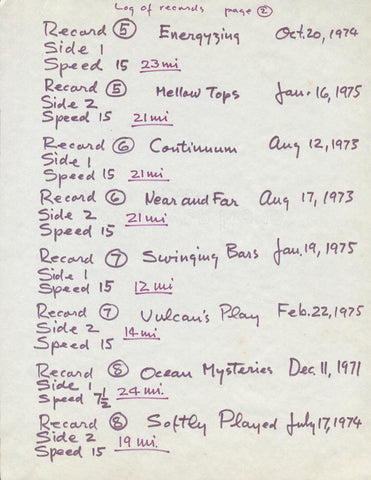 Log of records page ②
Record ⑤ Energyzing Oct. 20, 1974
Side 1
Speed 15 23 mi
Record ⑤ Mellow Tops Jan. 16, 1975
Side 2
Speed 15 21 mi
Record ⑥ Continuum Aug 12, 1973
Side 1
Speed 15 21 mi
Record ⑥ Near and Far Aug 17, 1973
Side 2 21 mi
Speed 15
Record ⑦ Swinging Bars Jan. 19, 1975
Side 1
Speed 15 12 mi
Record ⑦ Vulcan's Play Feb. 22, 1975
Side 2 14 mi
Speed 15
Record ⑧ Ocean Mysteries Dec. 11, 1971
Side 1
Speed 7½ 24 mi.
Record ⑧ Softly Played July 17, 1974
Side 2 19 mi.
Speed 15